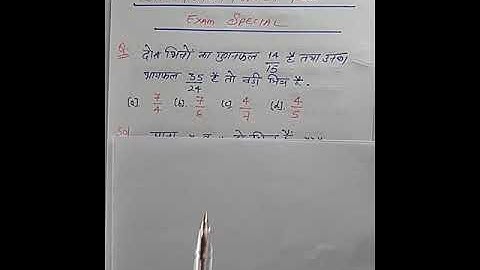 Exam Special
Q. दो भिन्नों का गुणनफल 14/15 है तथा उनका
भागफल 35/24 है तो बड़ी भिन्न है.
(a) 7/4 (b) 7/6 (c) 4/7 (d) 4/5
Sol